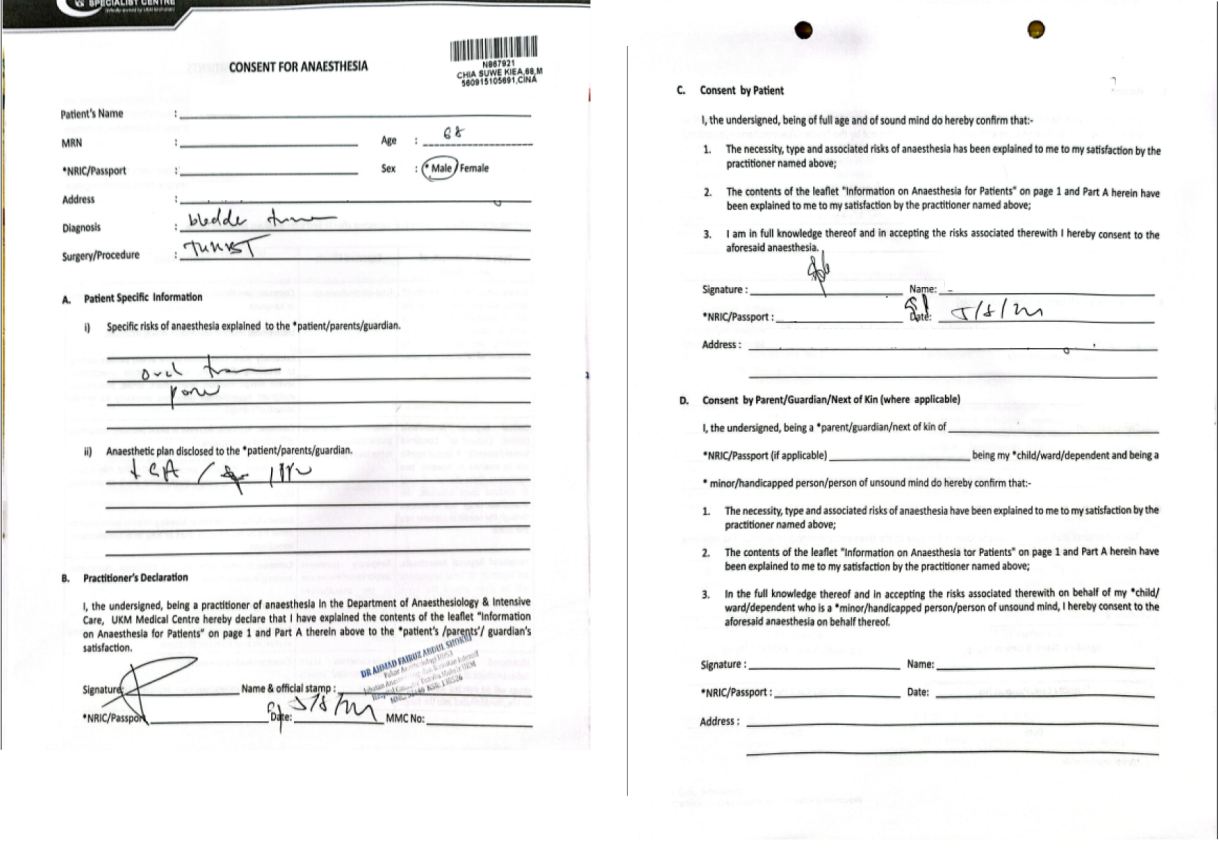 SPECIALIST CENTRE
CONSENT FOR ANAESTHESIA
N867921
CHIA SUWE KIEA,68,M
560915105691,CINA
Patient's Name :
MRN : Age : 68
*NRIC/Passport : Sex : * Male / Female
Address :
Diagnosis : bladder
Surgery/Procedure :
A. Patient Specific Information
i) Specific risks of anaesthesia explained to the *patient/parents/guardian.
ii) Anaesthetic plan disclosed to the *patient/parents/guardian.
B. Practitioner's Declaration
I, the undersigned, being a practitioner of anaesthesia in the Department of Anaesthesiology & Intensive
Care, UKM Medical Centre hereby declare that I have explained the contents of the leaflet "Information
on Anaesthesia for Patients" on page 1 and Part A therein above to the *patient's /parents'/ guardian's
satisfaction.
DR AHMAD FAIRUZ ABDUL SHOKRI
Signature: Name & official stamp :
*NRIC/Passport Date: MMC No:
C. Consent by Patient
I, the undersigned, being of full age and of sound mind do hereby confirm that:-
1. The necessity, type and associated risks of anaesthesia has been explained to me to my satisfaction by the
practitioner named above;
2. The contents of the leaflet "Information on Anaesthesia for Patients" on page 1 and Part A herein have
been explained to me to my satisfaction by the practitioner named above;
3. I am in full knowledge thereof and in accepting the risks associated therewith I hereby consent to the
aforesaid anaesthesia.
Signature : Name:
*NRIC/Passport : Date:
Address :
D. Consent by Parent/Guardian/Next of Kin (where applicable)
I, the undersigned, being a *parent/guardian/next of kin of
*NRIC/Passport (if applicable) being my *child/ward/dependent and being a
* minor/handicapped person/person of unsound mind do hereby confirm that:-
1. The necessity, type and associated risks of anaesthesia have been explained to me to my satisfaction by the
practitioner named above;
2. The contents of the leaflet "Information on Anaesthesia tor Patients" on page 1 and Part A herein have
been explained to me to my satisfaction by the practitioner named above;
3. In the full knowledge thereof and in accepting the risks associated therewith on behalf of my *child/
ward/dependent who is a *minor/handicapped person/person of unsound mind, I hereby consent to the
aforesaid anaesthesia on behalf thereof.
Signature : Name:
*NRIC/Passport : Date:
Address :